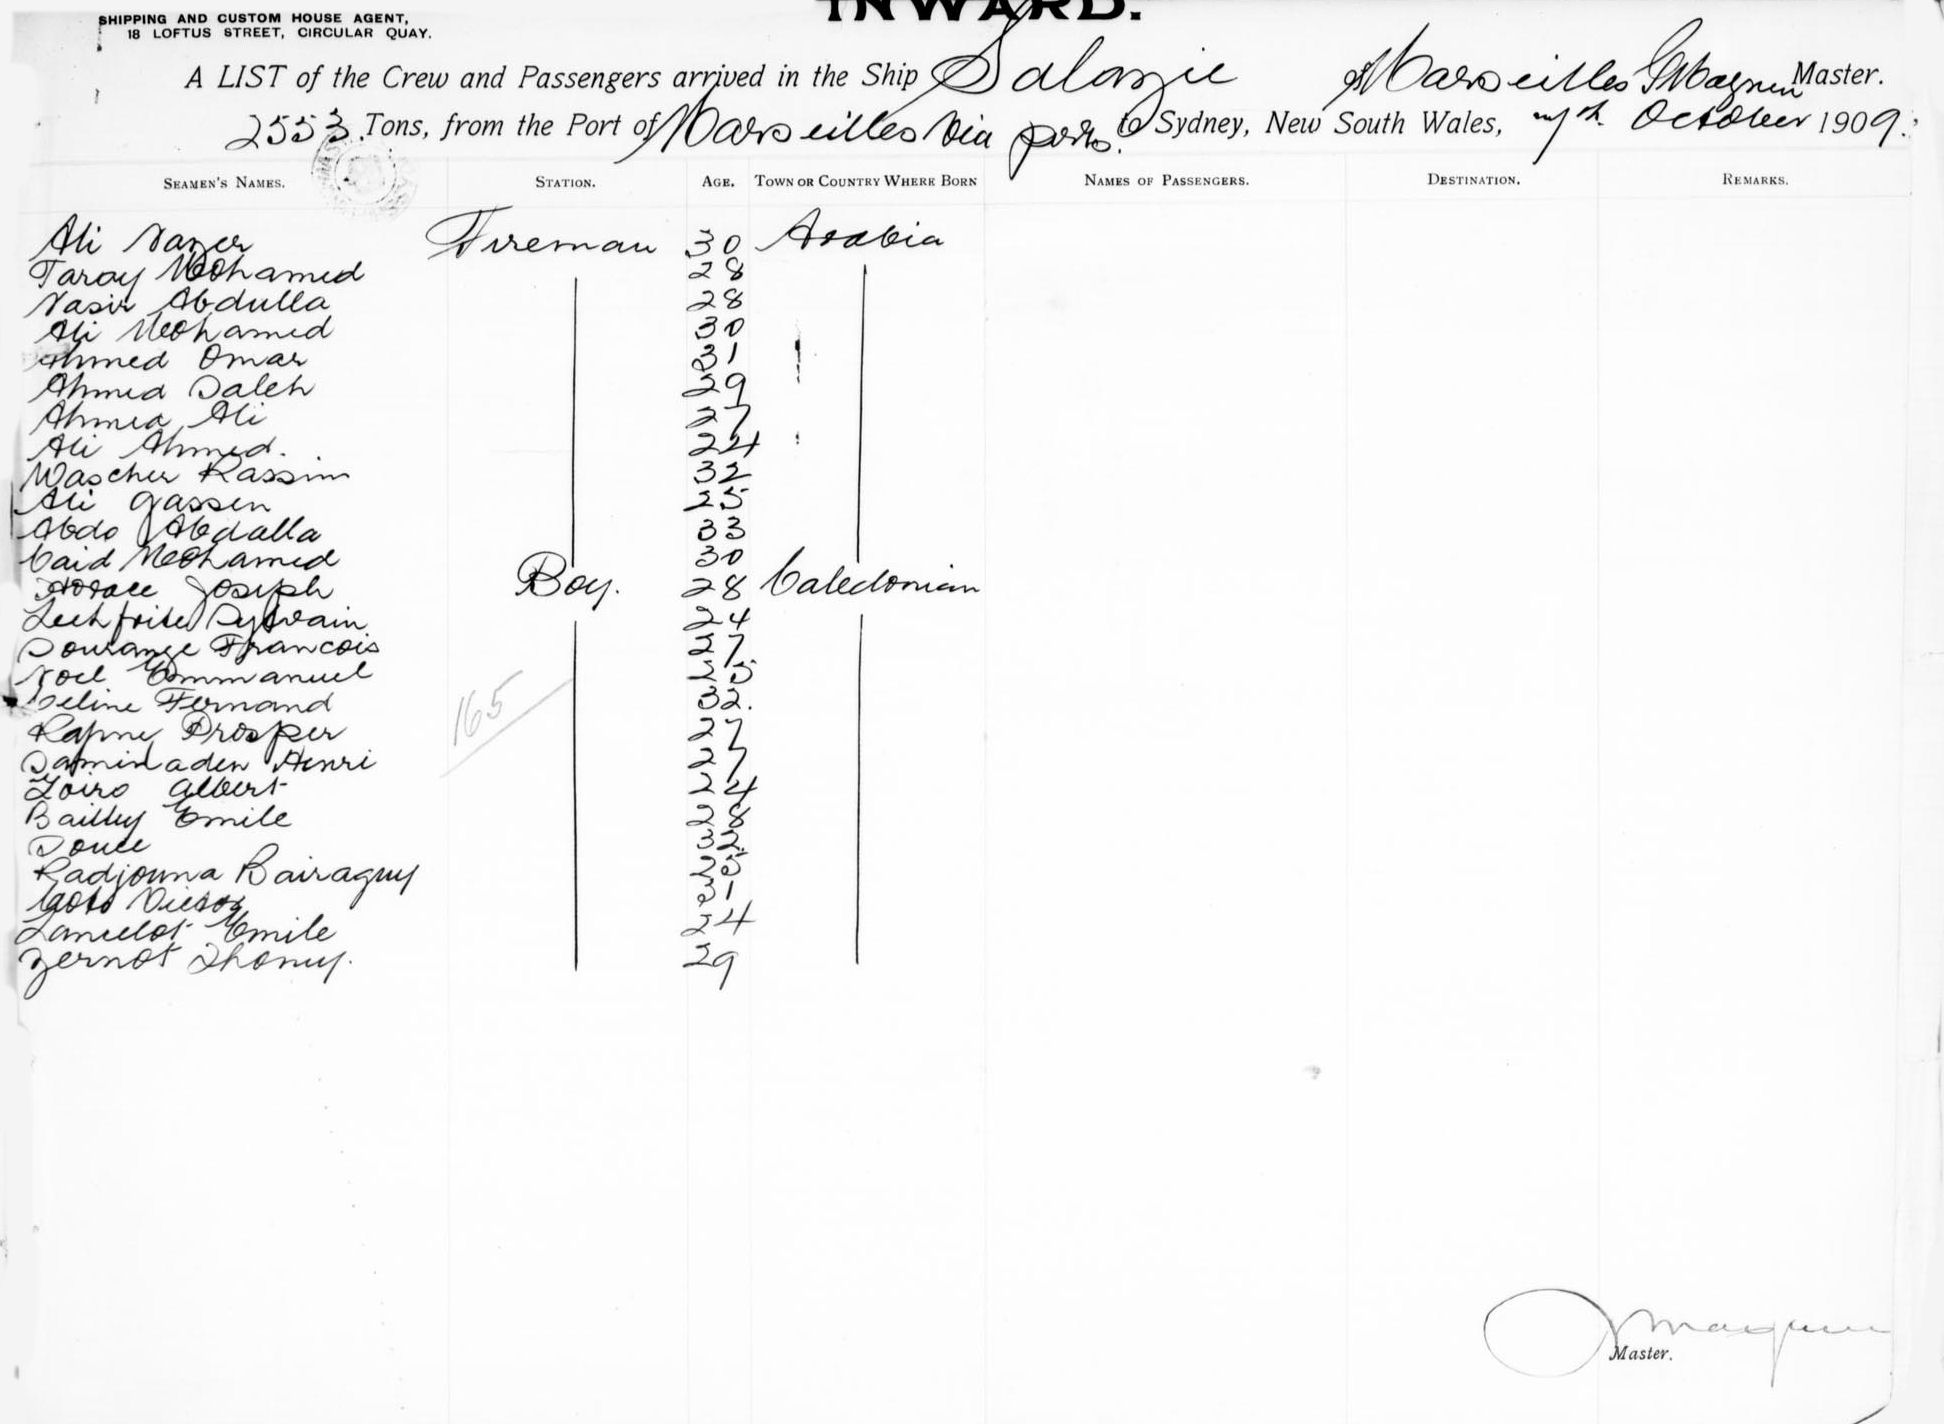 INWARD.
SHIPPING AND CUSTOM HOUSE AGENT,
18 LOFTUS STREET, CIRCULAR QUAY.
A LIST of the Crew and Passengers arrived in the Ship Salazie of Marseilles G Magnin Master.
2553 Tons, from the Port of Marseilles via ports to Sydney, New South Wales, October 1909.
SEAMEN'S NAMES. STATION. AGE. TOWN OR COUNTRY WHERE BORN NAMES OF PASSENGERS. DESTINATION. REMARKS.
Ali Nazer Fireman 30 Arabia
Taray Mohamed 28
Nasir Abdulla 28
Ali Mohamed 30
Ahmed Omar 31
Ahmed Saleh 29
Ahmed Ali 27
Ali Ahmed. 24
Wascher Kassim 32
Ali Gassen 25
Abdo Abdalla 33
Caid Mohamed 30
Horace Joseph Boy. 28 Caledonian
Sylvain 24
Dourange Francois 27
Noel Emmanuel 25
Celine Fernand 32.
Prosper 27
Saminaden Henri 27
Zoiro Albert 24
Bailly Emile 28
Douce 32
Radjouma Bairaguy 25
Coto Victor 31
Lancelot Emile 24
Zernot Thony. 29
165
Master.